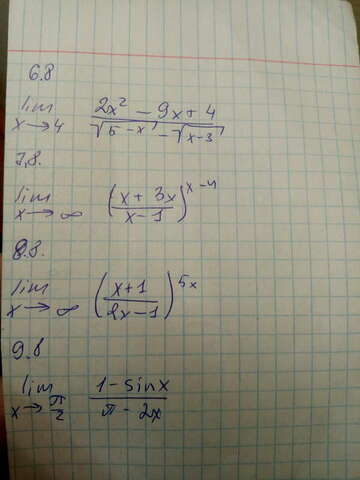 6.8
lim x→4 (2x² − 9x + 4)/(√(5−x) − √(x−3))
7.8.
lim x→∞ ((x + 3x)/(x − 1))^(x−4)
8.8.
lim x→∞ ((x+1)/(2x−1))^(5x)
9.8
lim x→π/2 (1 − sinx)/(π − 2x)